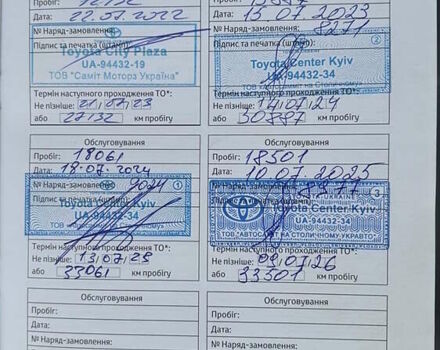 Дата: 22.07.2022
15.07.2023
№ Наряд-замовлення:
8271
Підпис та печатка (штамп):
Підпис та печатка (штамп):
Toyota City Plaza
UA-94432-19
ТОВ "Саміт Мотора Україна"
2
Toyota Center Kyiv
UA-94432-34
Термін наступного проходження ТО*:
Термін наступного проходження ТО*:
Не пізніше: 21.07.23
Не пізніше: 14.07.24
або 27132 км пробігу
або 30897 км пробігу
Обслуговування
Обслуговування
Пробіг: 18061
Пробіг: 18501
Дата: 18.07.2024
Дата: 10.07.2025
№ Наряд-замовлення: 9024
№ Наряд-замовлення:
1
3
Підпис та печатка (штамп):
Підпис та печатка
Toyota Center Kyiv
UA-94432-34
Toyota Center Kyiv
UA-94432-34
ТОВ "АВТОСАМІТ НА СТОЛИЧНОМУ УКРАВТО"
Термін наступного проходження ТО*:
Термін наступного проходження ТО*:
Не пізніше:
Не пізніше: 09.07.26
або 33061 км пробігу
або 33501 км пробігу
Обслуговування
Обслуговування
Пробіг:
Пробіг:
Дата:
Дата:
№ Наряд-замовлення:
№ Наряд-замовлення: